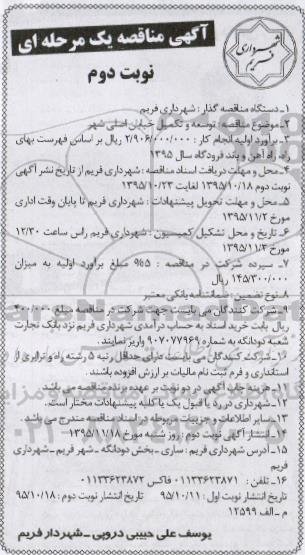 شهرداری فریم
آگهی مناقصه یک مرحله ای
نوبت دوم
۱-دستگاه مناقصه گذار : شهرداری فریم
۲-موضوع مناقصه : توسعه و تکمیل خیابان اصلی شهر
۳-برآورد اولیه انجام کار : ۲/۹۰۶/۰۰۰/۰۰۰ ریال بر اساس فهرست بهای
راه، راه آهن و باند فرودگاه سال ۱۳۹۵
۴-محل و مهلت دریافت اسناد مناقصه : شهرداری فریم از تاریخ نشر آگهی
نوبت دوم ۱۳۹۵/۱۰/۱۸ لغایت ۱۳۹۵/۱۰/۲۳
۵- محل و مهلت تحویل پیشنهادات : شهرداری فریم تا پایان وقت اداری
مورخ ۱۳۹۵/۱۱/۲
۶- تاریخ و محل تشکیل کمیسیون : شهرداری فریم راس ساعت ۱۲/۳۰
مورخ ۱۳۹۵/۱۱/۳
۷- سپرده شرکت در مناقصه : ۵% مبلغ برآورد اولیه به میزان
۱۴۵/۳۰۰/۰۰۰ ریال
۸-نوع تضمین : ضمانتنامه بانکی معتبر
۹-شرکت کنندگان می بایست جهت شرکت در مناقصه مبلغ ۴۰۰/۰۰۰
ریال بابت خرید اسناد به حساب درآمدی شهرداری فریم نزد بانک تجارت
شعبه کودانگه به شماره ۹۰۷۰۷۷۹۶۹ واریز نمایند.
۱۰-شرکت کنندگان می بایست دارای حداقل رتبه ۵ رشته راه و ترابری از
استانداری و فرم ثبت نام مالیات بر ارزش افزوده باشند.
۱۱-هزینه چاپ آگهی در دو نوبت بر عهده برنده مناقصه می باشد.
۱۲-شهرداری در رد یا قبول یک یا کلیه پیشنهادات مختار است.
۱۳-سایر اطلاعات و جزییات مربوطه در اسناد مناقصه مندرج می باشد.
۱۴- انتشار آگهی نوبت دوم : روز شنبه مورخ ۱۳۹۵/۱۱/۱۸
۱۵-آدرس شهرداری فریم : ساری - بخش دودانگه - شهر فریم - شهرداری
فریم
۱۶- تلفن : ۰۱۱۳۳۶۲۳۸۷۱ فاکس ۰۱۱۳۳۶۲۳۸۷۲
تاریخ انتشار نوبت اول : ۹۵/۱۰/۱۱ تاریخ انتشار نوبت دوم : ۹۵/۱۰/۱۸
م - الف ۱۲۵۹۹
یوسف علی حبیبی دروپی - شهردار فریم